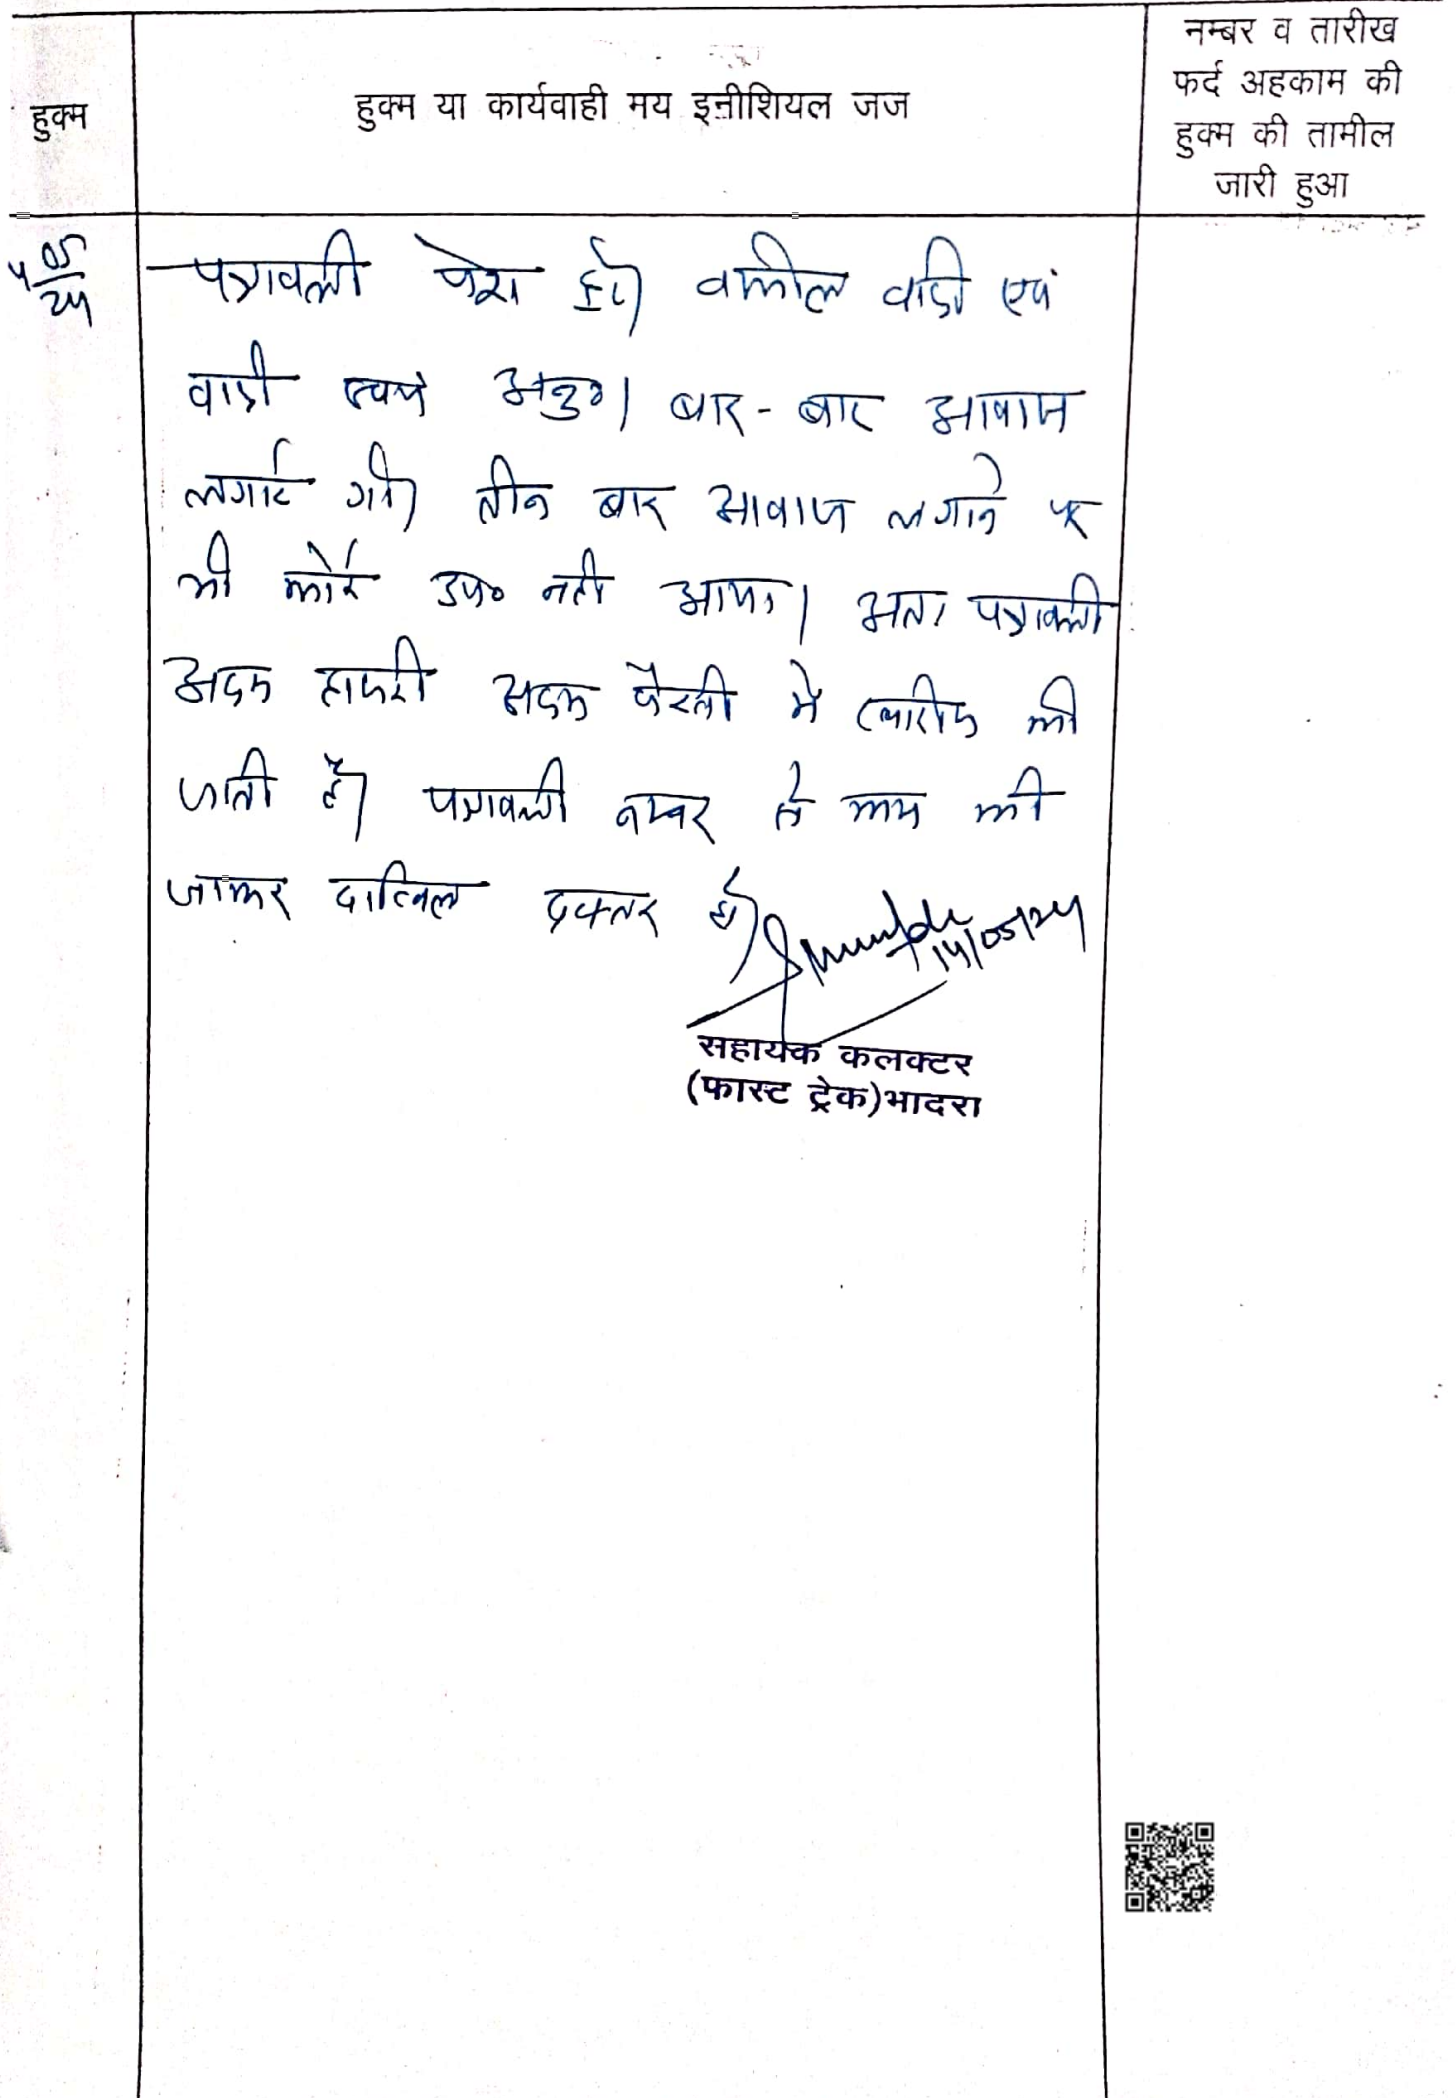 हुक्म
हुक्म या कार्यवाही मय इनीशियल जज
नम्बर व तारीख
फर्द अहकाम की
हुक्म की तामील
जारी हुआ
05
24
पत्रावली पेश हुई। वकील वादी एवं
वादी स्वयं अनु०। बार-बार आवाज
लगाई गई। तीन बार आवाज लगाने पर
भी कोई उप० नही आया। अतः पत्रावली
अदम हाजरी अदम पैरवी में खारीज की
जाती है। पत्रावली नम्बर से कम की
जाकर दाखिल दफ्तर हो।
14/05/24
सहायक कलक्टर
(फास्ट ट्रेक)भादरा